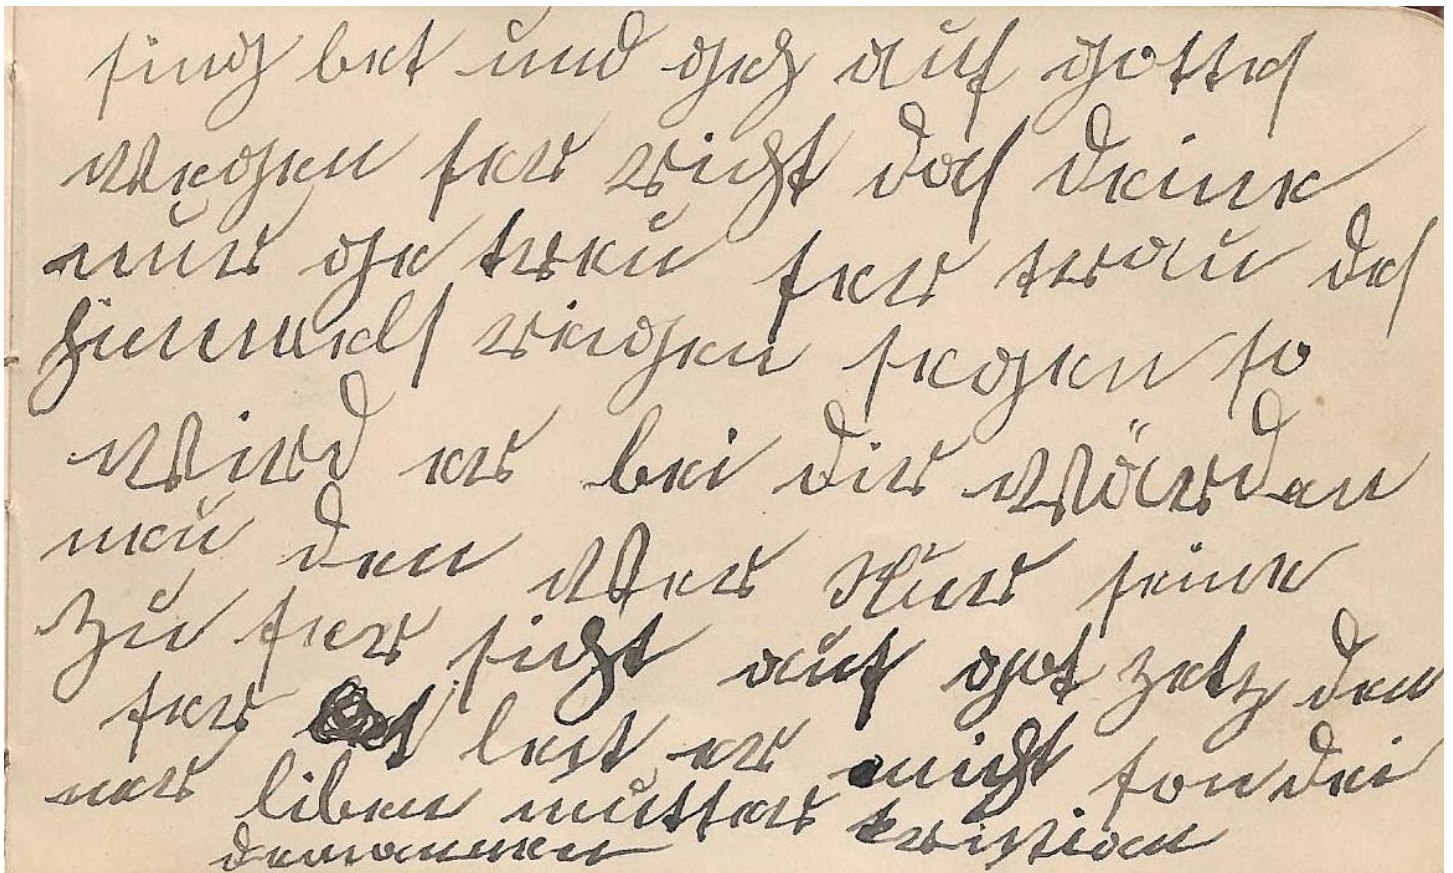 sing bet und geh auf gottes
wegen fer richt das deine
nur ge treu fer trau des
himmels reigen segen so
wird er bei dir wärden
neu den wer nur seine
zu fer sicht auf got zetz den
fer lest er nicht fon dei
ner liben mutter